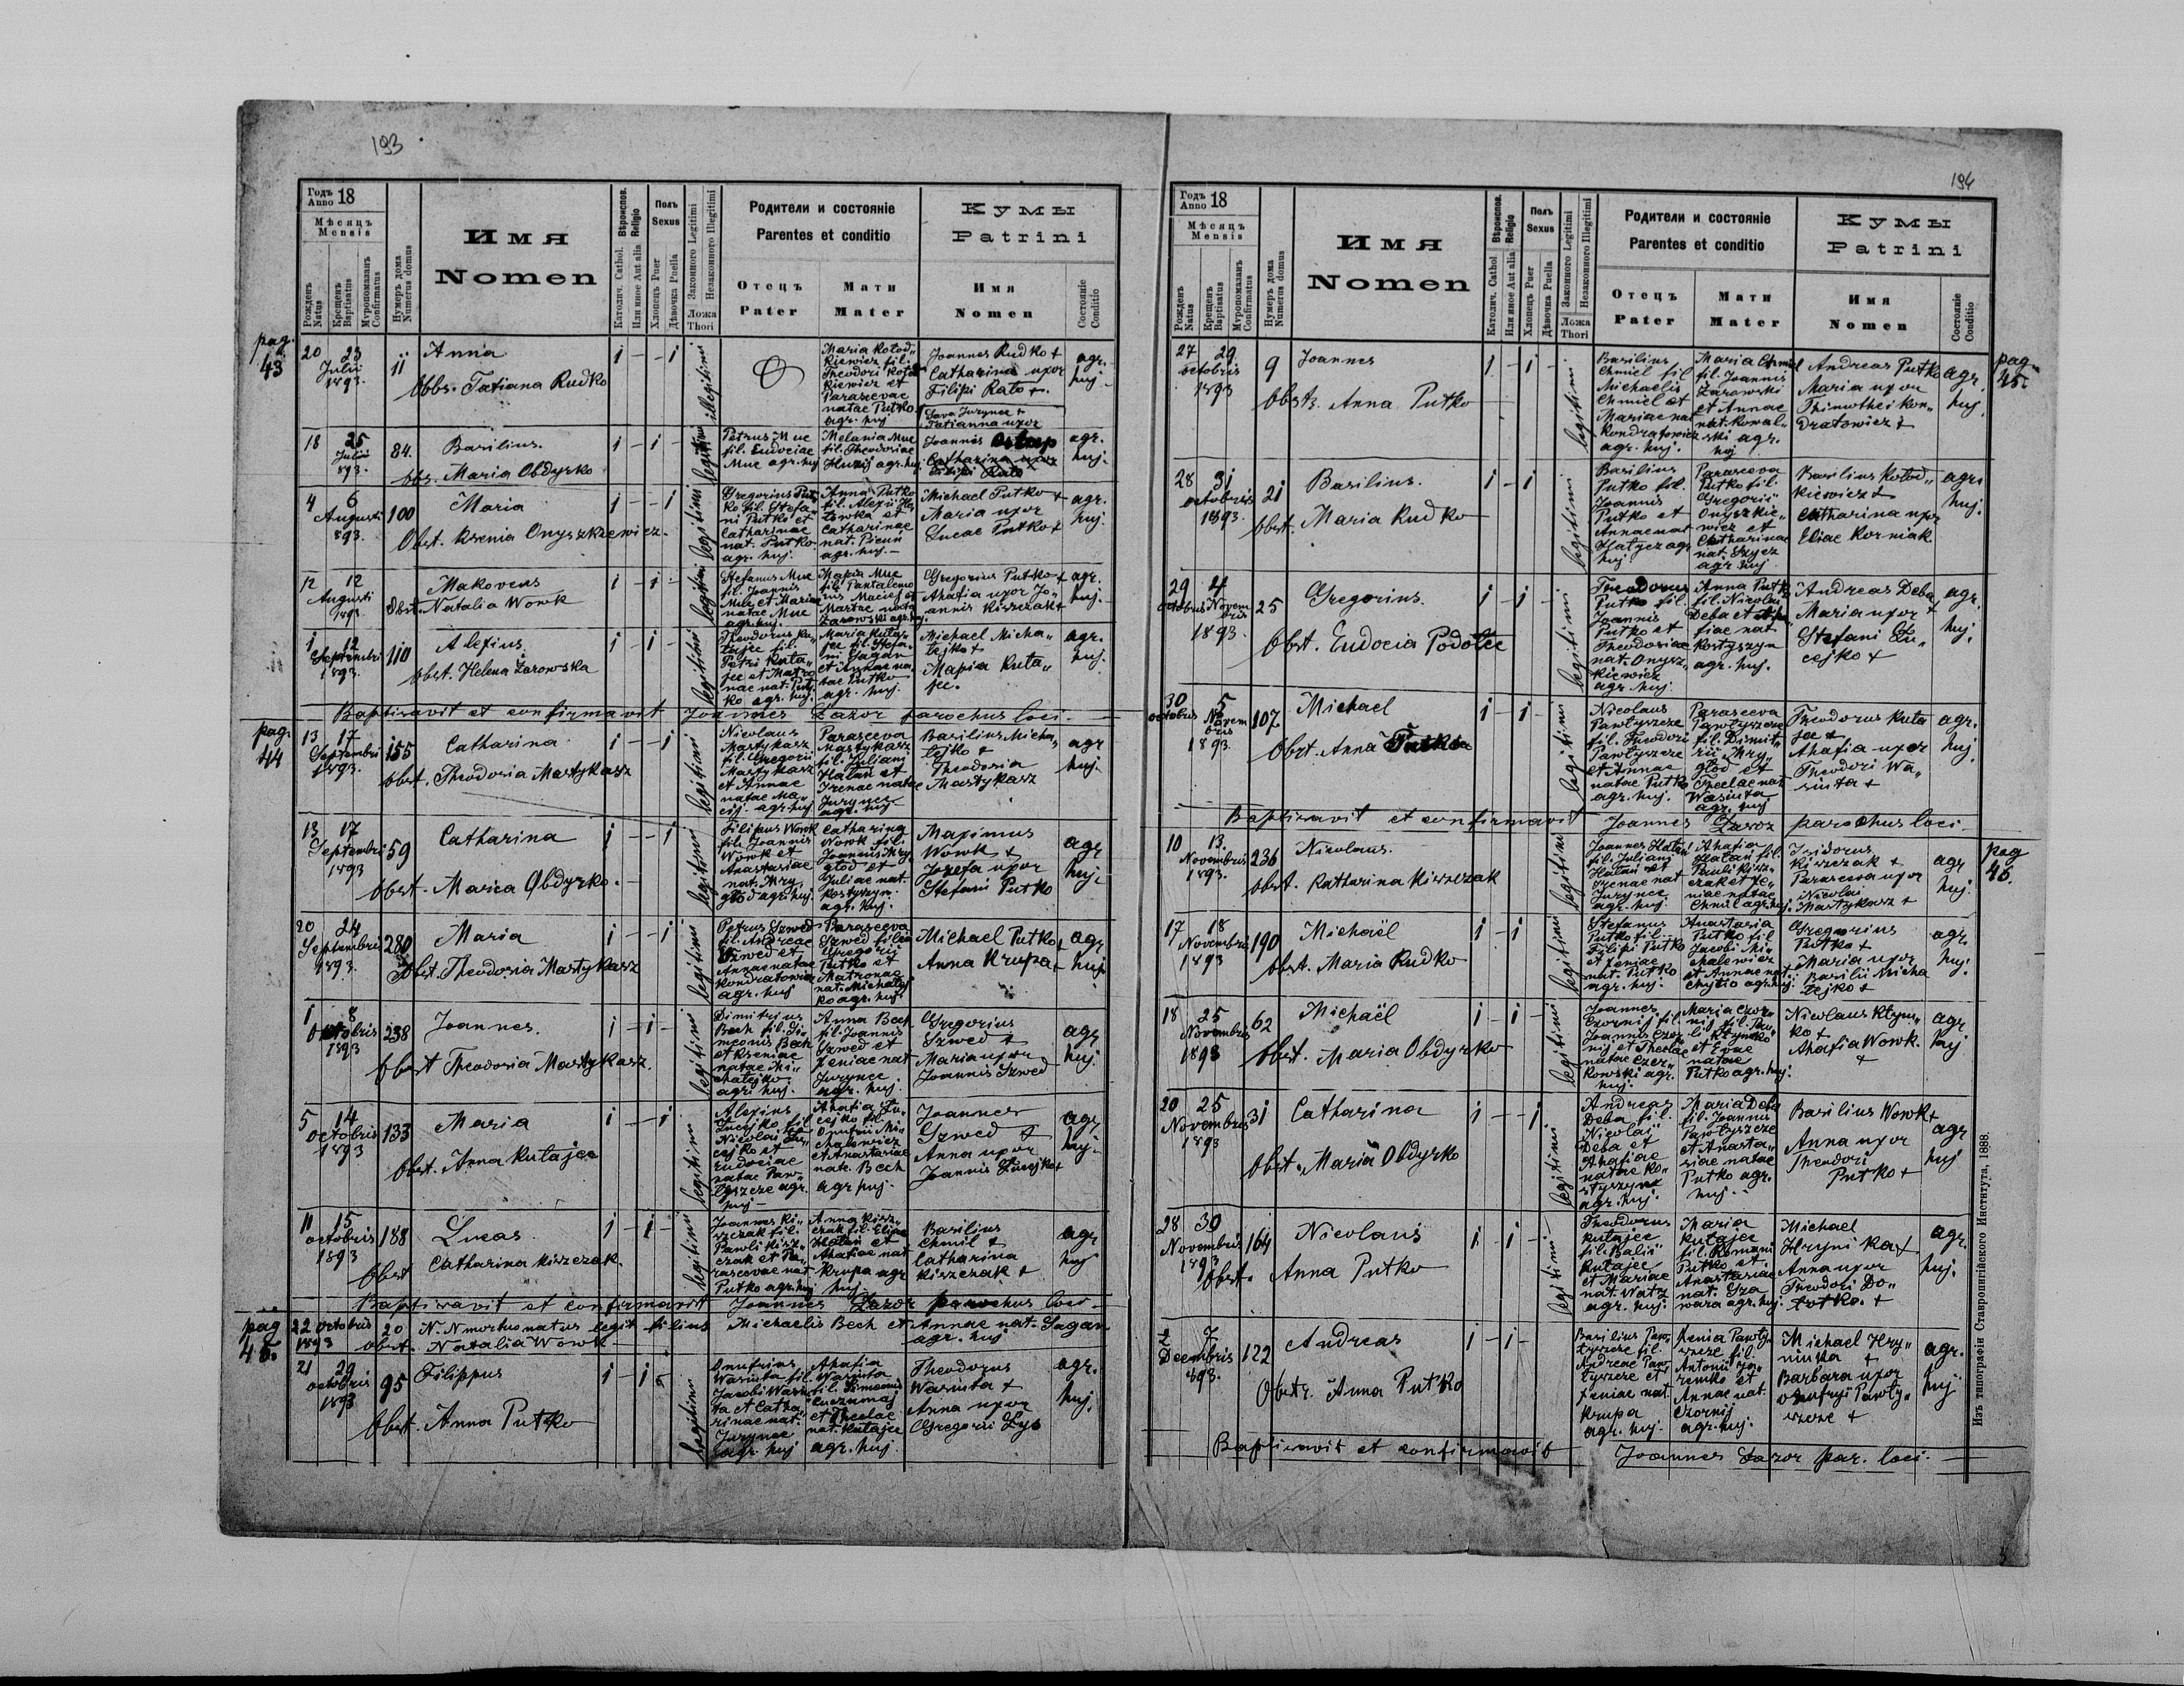 193
Годъ 18
Anno
Мѣсяцъ
Mensis
Рожденъ
Natus
Крещенъ
Baptisatus
Мѵропомазанъ
Confirmatus
Нумеръ дома
Numerus domus
Имя
Nomen
Вѣроиспов.
Religio
Католич. Cathol.
Или иное Aut alia
Полъ
Sexus
Хлопецъ Puer
Дѣвочка Puella
Законного Legitimi
Незаконного Illegitimi
Ложа
Thori
Родители и состояніе
Parentes et conditio
Отецъ
Pater
Мати
Mater
Кумы
Patrini
Имя
Nomen
Состояніе
Conditio
pag.
43
20 23
Julii
1893.
11
Anna
Obbs. Tatiana Rudko
illegitimi
Maria Kołod„
kiewicz fil.
Theodori Koło
kiewicz et
Parascevae
natae Putko
agr. huj
Joannes Rudko +
Catharina uxor
Filipi Rato +.
Sava Jurynec +
Tatianna uxor
agr.
huj.
18 25
Julii
893.
84.
Basilius.
obs. Maria Obdyrko
legitimi
Petrus Muc
fil. Eudociae
Muc agr. huj
Melania Muc
fil. Theodosiae
Huzij agr. huj.
Joannis Ostap
Catharina uxor
Filipi Rato
agr.
huj.
4 6
Augusti
893.
100
Maria
Obst. Ksenia Onyszkiewicz.
legitimi
Gregorius Put„
ko fil. Stefa„
ni Putko et
Catharinae
nat. Putko
agr. huj.
Anna Putko
fil. Alexii
Catharinae
nat. Picuń
agr. huj. —
Michael Putko +
Maria uxor
Lucae Putko +
agr.
huj.
12 12
Augusti
1893.
Makoveus
Obst. Natalia Wowk
legitimi
Stefanus Muc
fil. Joannis
Muc et Mariae
natae Muc
agr. huj.
Maria Muc
fil. Pantalemo
nis Maciej et
Martae nata
Zarowski agr. huj.
Gregorius Putko +
Ahafia uxor Jo„
annis Kiszczak +
agr.
huj.
1 12
Septembri
1893.
110
Alexius
obst. Helena Zarowska
legitimi
Theodorus Ku„
tajec fil.
Petri Kuta„
jec et Matro
nae nat. Put„
ko agr. huj.
Maria Kutaj„
jec fil. Stefa„
ni Sagan
et Annae na„
tae Putko
agr. huj.
Michael Micha„
lejko +
Maria Kuta„
jec.
agr.
huj.
Baptisavit et confirmavit Joannes Łazor parochus loci. —
pag.
44
13 17
Septembri
1893.
155
Catharina
obst. Theodoria Martykasz
legitimi
Nicolaus
Martykasz
fil. Gregorii
Martykasz
et Annae
natae Ma„
cij agr. huj
Parasceva
Martykasz
fil. Juliani
Hałań et
Irenae natae
Jurynec
agr. huj
Basilius Micha„
lejko +
Theodoria
Martykasz
agr
huj.
13 17
Septembri
1893
59
Catharina
obst. Maria Obdyrko. —
legitimi
Filipus Wowk
fil. Joannis
Wowk et
Anastasiae
nat. Mry„
głod agr. huj.
Catharina
Wowk fil.
Joannis Mry„
głod et
Juliae nat.
Kostyszyn.
agr. huj.
Maximus
Wowk +
Jozefa uxor
Stefani Putko
agr
huj.
20 24
Septembri
1893.
280
Maria
Obst. Theodosia Martykasz
legitimi
Petrus Szwed
fil. Andreae
Szwed et
Annae natae
Kondratowicz
agr. huj
Parasceva
Szwed filia
Gregorii
Putko et
Matronae
nat. Michalej
ko agr. huj.
Michael Putko +
Anna Krupa +
agr
huj.
1 8
Octobris
1893
238
Joannes.
Obst Theodoria Martykasz.
legitimi
Dimitrius
Bech fil. Si„
meonis Bech
et Kseniae
natae Mi„
chalejko
agr. huj.
Anna Bech
fil. Joannis
Szwed et
Xeniae nat
Jurynec
agr. huj.
Gregorius
Szwed +
Maria uxor
Joannis Szwed
agr
huj.
5 14
Octobris
1893
133
Maria
Obst. Anna Kutajec
legitimi
Alexius
Łucejko fil
Nicolai Łu„
cejko et
Eudociae
natae Paw„
łyszcze agr.
huj —
Ahafia Łu„
cejko fil.
Onufrii Mi„
chalewicz
et Anastasiae
nat. Bech
agr huj.
Joannes
Szwed +
Anna uxor
Joannis Łucejko +
agr
huj.
11 15
octobris
1893
188
Lucas.
Obst Catharina Kiszczak.
legitimi
Joannes Ki„
szczak fil.
Pawli Kisz„
czak et Pa„
rascevae nat
Putko agr. huj
Anna Kisz„
czak fil. Eliae
Hałań et
Ahafiae nat
Krupa agr
huj
Basilius
Chmil +
Catharina
Kiszczak +
agr
huj
Baptisavit et confirmavit Joannes Łazor parochus loci —
pag
45.
22 octobris
1893
20
N. N mortuo natus legit. filius Michaelis Bech et Annae nat. Sagan
obst. Natalia Wowk — agr. huj
21 29
octobris
1893
95
Filippus
Obst. Anna Putko
Legitimi
Onufrius
Wasiuta fil.
Jacobi Wasiu
ta et Catha„
rinae nat.
Jurynec
agr. huj
Ahafia
Wasiuta
fil. Simeonis
et Theclae
nat. Kutajec
agr. huj.
Theodorus
Wasiuta +
Anna uxor
Gregorii Łys
agr.
huj.
194
Годъ 18
Anno
Мѣсяцъ
Mensis
Рожденъ
Natus
Крещенъ
Baptisatus
Мѵропомазанъ
Confirmatus
Нумеръ дома
Numerus domus
Имя
Nomen
Вѣроиспов.
Religio
Католич. Cathol
Или иное Aut alia
Полъ
Sexus
Хлопецъ Puer
Дѣвочка Puella
Законного Legitimi
Незаконного Illegitimi
Ложа
Thori
Родители и состояніе
Parentes et conditio
Отецъ
Pater
Мати
Mater
Кумы
Patrini
Имя
Nomen
Состояніе
Conditio
pag
45.
27 29
octobris
1893
9
Joannes
Obst. Anna Putko
legitimi
Basilius
Chmiel fil
Michaelis
Chmiel et
Mariae nat
Kondratowicz
agr. huj.
Maria Chmiel
fil. Joannis
Żarowski
et Annae
nat. Kowal„
ski agr.
huj
Andreas Putko
Maria uxor
Thimothei Kon„
dratowicz +
agr.
huj.
28 31
octobris
1893.
21
Basilius.
Obst. Maria Rudko
legitimi
Basilius
Putko fil.
Joannis
Putko et
Annae nat
Hałycz agr
huj
Parasceva
Putko fil.
Gregorii
Onyszkie„
wicz et
Catharinae
nat. Szycz
agr huj.
Basilius Kołod„
kiewicz +
Catharina uxor
Eliae Korniak
agr.
huj.
29 4
octobris Novem
bris
1893.
25
Gregorius.
Obst. Eudocia Podolec
legitimi
Theodorus
Putko fil
Joannis
Putko et
Theodosiae
nat. Onysz„
kiewicz
agr. huj.
Anna Putko
fil. Nicolai
Deba et Aha
fiae nat
Kostyszyn
agr. huj.
Andreas Deba
+
Maria uxor
Stefani Łu„
cejko +
agr.
huj.
30 5
octobris Novem
bris
1893.
107
Michael
Obst. Anna Putko
legitimi
Nicolaus
Pawłyszcze
fil. Theodori
Pawłyszcze
et Annae
natae Putko
agr. huj.
Parasceva
Pawłyszcze
fil. Dimit„
rii Mry„
głod et
Theclae nat
Wasiuta
agr. huj
Theodorus Kuta
jec +
Ahafia uxor
Theodori Wa„
siuta +
agr.
huj.
Baptisavit et confirmavit Joannes Łazor parochus loci —
pag
46.
10 13.
Novembris
1893.
236
Nicolaus.
obst. Katharina Kiszczak
legitimi
Joannes Hałań
fil. Juliani
Hałań et
Irenae nat
Jurynec
agr. huj.
Ahafia
Hałań fil.
Pauli Kisz„
czak et Xe„
niae natae
Chmil agr. huj.
Izidorus
Kiszczak +
Parasceva uxor
Nicolai
Martykasz +
agr
huj.
17 18
Novembris
1893
190
Michaël
Obst. Maria Rudko
legitimi
Stefanus
Putko fil.
Filipi Putko
et Xeniae
nat. Putko
agr. huj.
Anastasia
Putko fil
Jacobi Mi„
chalewicz
et Annae nat.
agr. huj.
Gregorius
Putko +
Maria uxor
Basilii Micha
lejko +
agr.
huj.
18 25
Novembris
1893
62
Michaël
Obst. Maria Obdyrko
legitimi
Joannes
Czornij fil.
Joannis Czor„
nij et Theclae
natae Czer„
kowski agr.
huj.
Maria Czor„
nij fil. Pau„
li Kłymko
et Evae
natae
Putko agr. huj.
Nicolaus Kłym„
ko +
Ahafia Wowk.
+
agr
huj
20 25
Novembris
1893
31
Catharina
Obst. Maria Obdyrko
legitimi
Andreas
Deba fil.
Nicolai
Deba et
Ahafiae
natae Ko„
styszyn
agr. huj.
Maria Deba
fil. Joannis
Pawłyszcze
et Anasta„
siae natae
Putko agr.
huj. —
Basilius Wowk +
Anna uxor
Theodori
Putko +
agr
huj
28 30
Novembris
1893
164
Nicolaus
Obst. Anna Putko
legitimi
Theodorus
Kutajec
Kutajec
et Mariae
nat. Watz
agr. huj.
Maria
Kutajec
fil. Romani
Putko et
Anastasiae
nat. Sza
wara agr. huj.
Michael
Hryni ka +
Anna uxor
Theodori Do„
+
agr.
huj.
2 7
Decembris
893.
122
Andreas
Obstr. Anna Putko
Basilius Paw„
łyszcze fil.
Andreae Paw„
łyszcze et
Xeniae nat.
Krupa
agr. huj.
Xenia Pawły„
szcze fil.
Antonii Ja„
remko et
Annae nat.
Czornij
agr. huj.
Michael Hry„
niuka +
Barbara uxor
Onufryi Pawły„
szcze +
agr.
huj
Baptisavit et confirmavit Joannes Łazor par. loci. —
Изъ типографіи Ставропигійского Института, 1888.